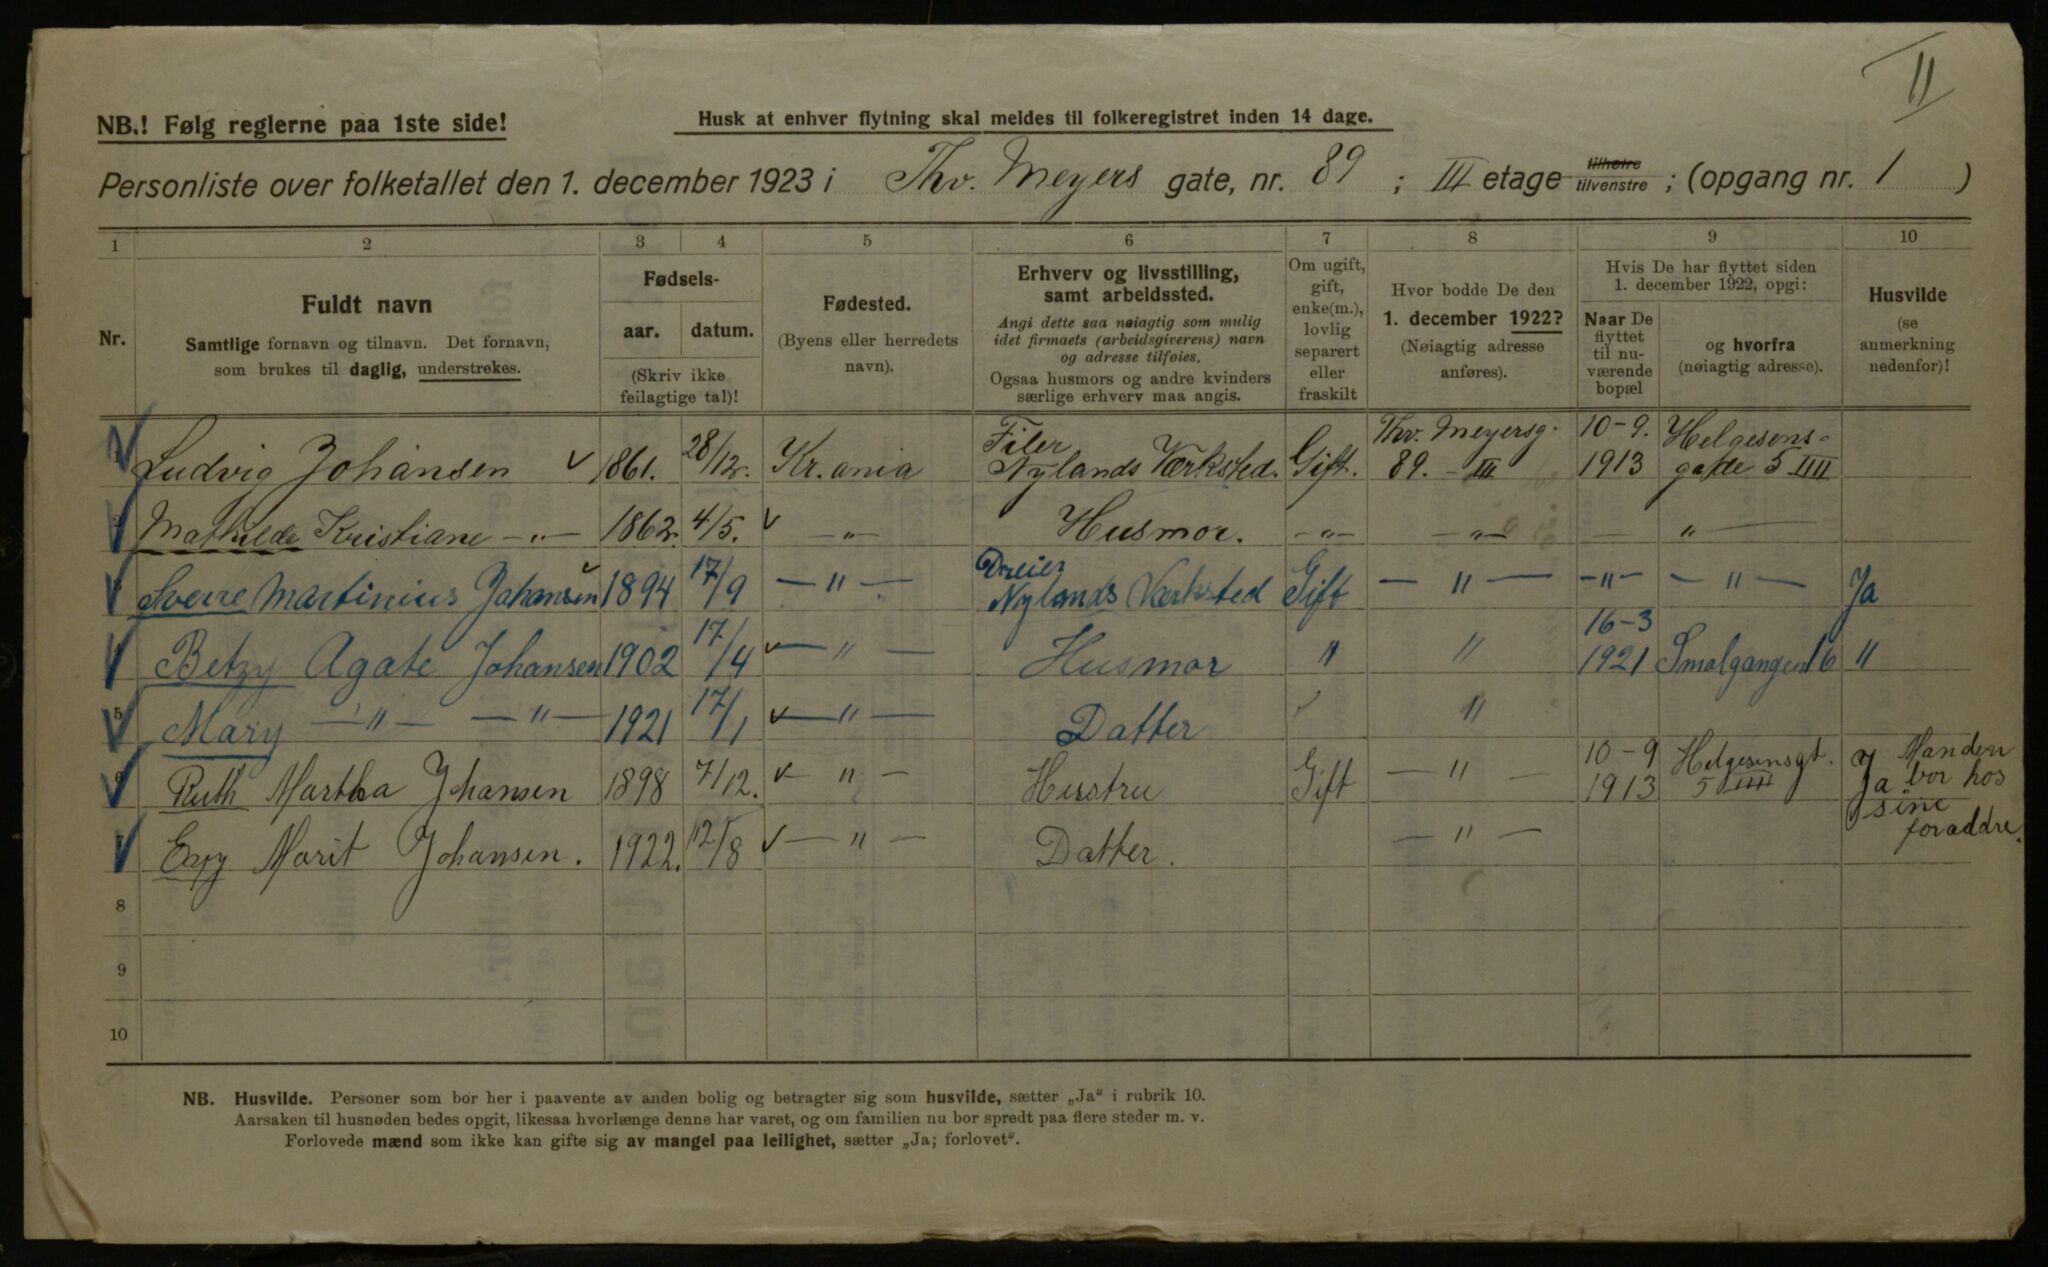 II
NB.! Følg reglerne paa 1ste side!
Husk at enhver flytning skal meldes til folkeregistret inden 14 dage.
Personliste over folketallet den 1. december 1923 i Thv. Meyers gate, nr. 89 ; III etage tilhøire tilvenstre ; (opgang nr. 1 )
1 2 3 4 5 6 7 8 9 10
Nr.
Fuldt navn
Samtlige fornavn og tilnavn. Det fornavn,
som brukes til daglig, understrekes.
Fødsels-
aar. datum.
(Skriv ikke
feilagtige tal)!
Fødested.
(Byens eller herredets
navn).
Erhverv og livsstilling,
samt arbeidssted.
Angi dette saa nøiagtig som mulig
idet firmaets (arbeidsgiverens) navn
og adresse tilføies.
Ogsaa husmors og andre kvinders
særlige erhverv maa angis.
Om ugift,
gift,
enke(m.),
lovlig
separert
eller
fraskilt
Hvor bodde De den
1. december 1922?
(Nøiagtig adresse
anføres).
Hvis De har flyttet siden
1. december 1922, opgi:
Naar De
flyttet
til nu-
værende
bopæl
og hvorfra
(nøiagtig adresse).
Husvilde
(se
anmerkning
nedenfor)!
Filer Thv. Meyersg. 10-9. Helgesens-
1 Ludvig Johansen 1861. 28/12. Kr.ania Nylands Værksted. Gift. 89. - III 1913 gade 5 IIII
2 Mathilde Kristiane -"- 1862. 4/5. -"- Husmor. -"- -"- — " —
Dreier
3 Sverre Martinius Johansen 1894 17/9 -"- Nylands Værksted Gift -"- -"- -"- Ja
16-3
4 Betzy Agate Johansen 1902 17/4 -"- Husmor " " 1921 Smalgangen 16 "
5 Mary -"- -"- 1921 17/1 -"- Datter "
10-9 Helgesensgt. Manden
6 Ruth Martha Johansen 1898 7/12. -"- Hustru Gift -"- 1913 5 IIII Ja bor hos
sine
foraddre.
7 Johansen. Marit 1922. 12/8 -"- Datter. -"-
8
9
10
NB. Husvilde. Personer som bor her i paavente av anden bolig og betragter sig som husvilde, sætter „Ja“ i rubrik 10.
Aarsaken til husnøden bedes opgit, likesaa hvorlænge denne har varet, og om familien nu bor spredt paa flere steder m. v.
Forlovede mænd som ikke kan gifte sig av mangel paa leilighet, sætter „Ja; forlovet“.